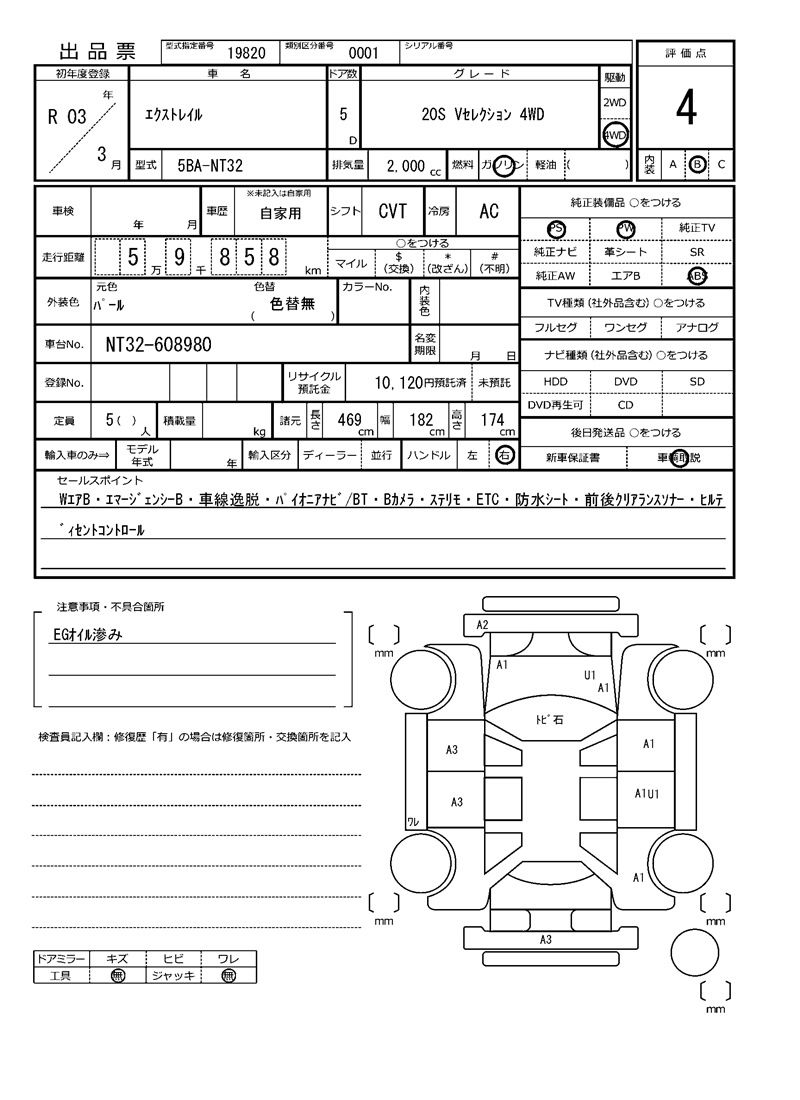 出品票 型式指定番号 19820 類別区分番号 0001 シリアル番号
評価点
初年度登録 車名 ドア数 グレード 駆動
R 03 年 3 月 エクストレイル 5 D 20S Vセレクション 4WD 2WD 4WD 4
型式 5BA-NT32 排気量 2.000 cc 燃料 ガソリン 軽油 ( ) 内装 A B C
車検 年 月 車歴 ※未記入は自家用 自家用 シフト CVT 冷房 AC
走行距離 5 万 9 千 8 5 8 km ○をつける マイル $ (交換) * (改ざん) # (不明)
外装色 元色 パール 色替 ( 色替無 ) カラーNo. 内装色
車台No. NT32-608980 名変期限 月 日
登録No. リサイクル預託金 10,120円預託済 未預託
定員 5 ( ) 人 積載量 kg 諸元 長さ 469 cm 幅 182 cm 高さ 174 cm
輸入車のみ⇒ モデル年式 年 輸入区分 ディーラー 並行 ハンドル 左 右
純正装備品 ○をつける
PS PW 純正TV
純正ナビ 革シート SR
純正AW エアB ABS
TV種類 (社外品含む) ○をつける
フルセグ ワンセグ アナログ
ナビ種類 (社外品含む) ○をつける
HDD DVD SD
DVD再生可 CD
後日発送品 ○をつける
新車保証書 車輌取説
セールスポイント
WエアB・エマージェンシーB・車線逸脱・パイオニアナビ/BT・Bカメラ・ステリモ・ETC・防水シート・前後クリアランスソナー・ヒルデ
ィセントコントロール
注意事項・不具合箇所
EGオイル滲み
検査員記入欄：修復歴「有」の場合は修復箇所・交換箇所を記入
A2
mm mm
A1 U1
A1
トビ石
A3 A1
A3 A1U1
ワレ
A1
mm mm
A3
mm
ドアミラー キズ ヒビ ワレ
工具 無 ジャッキ 無